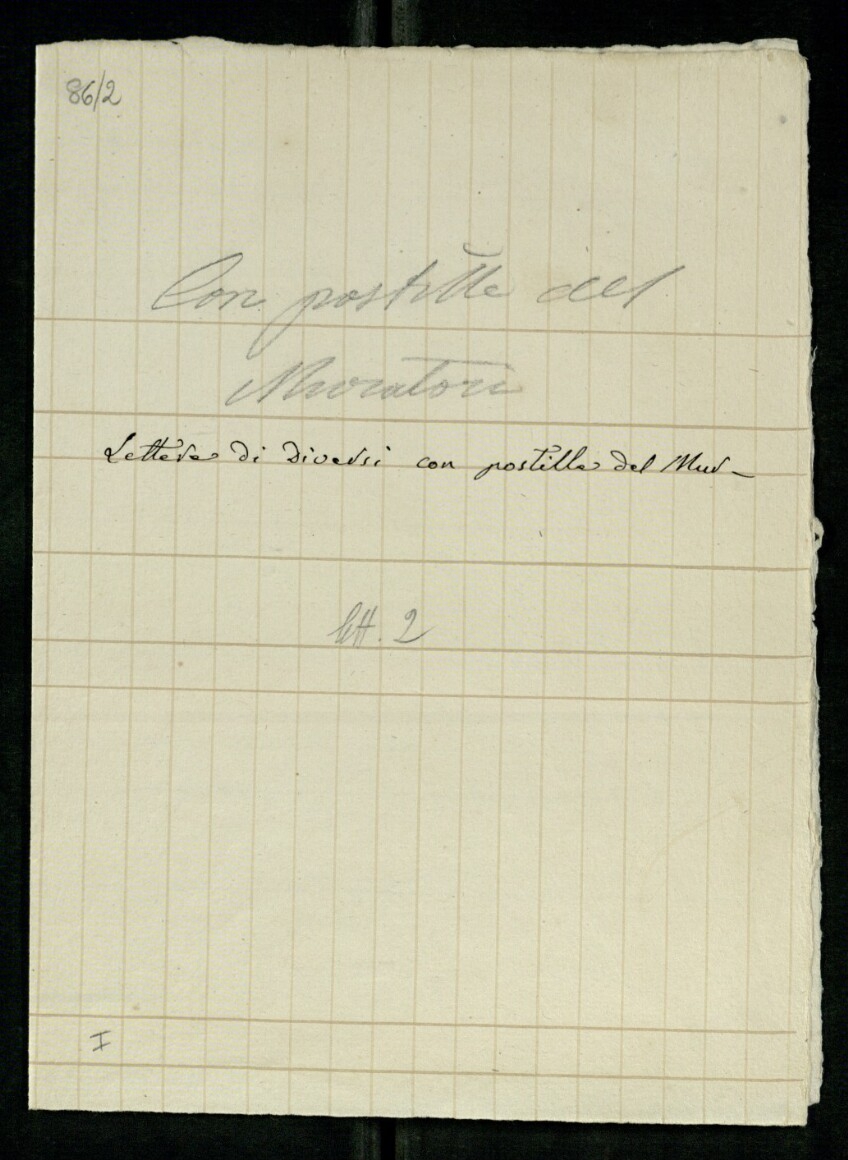 86/2
Con postille del
Muratori
Lettere di diversi con postille del Mur_
lett. 2
I